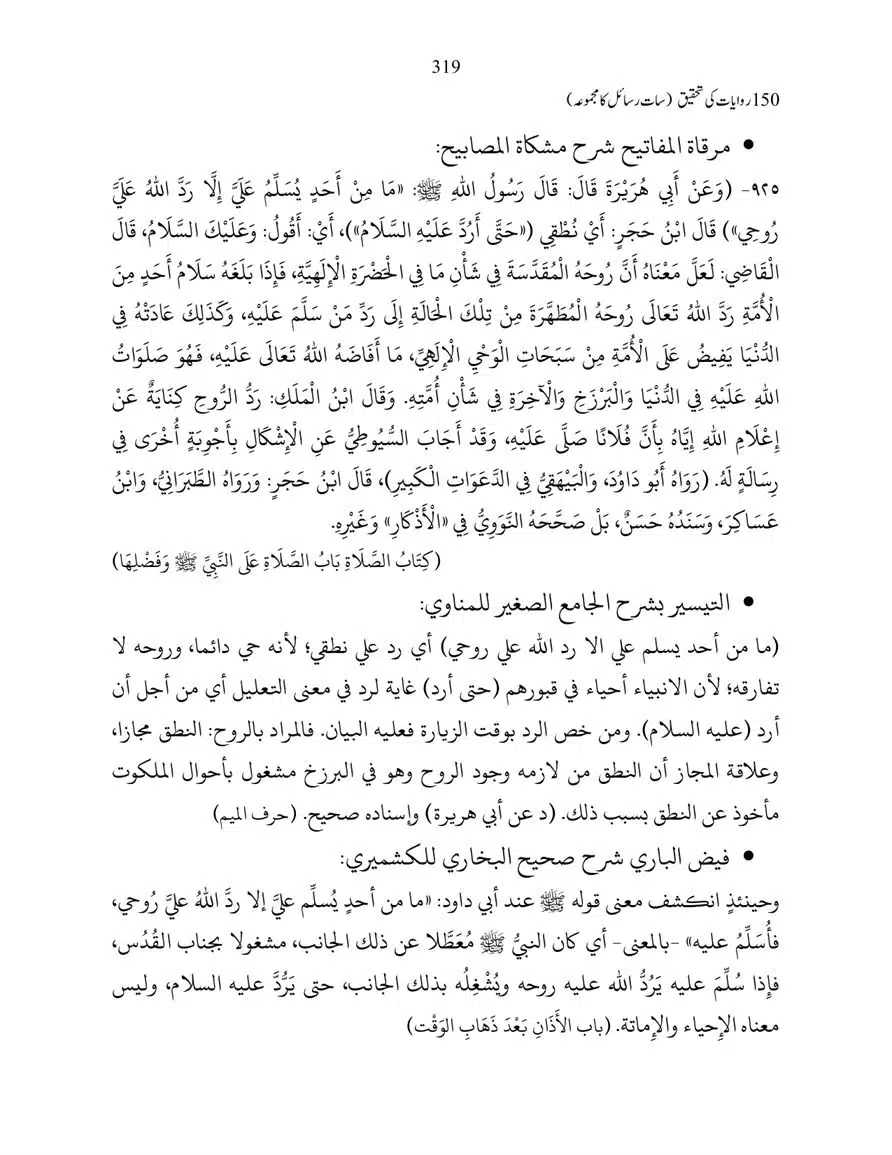 319
150 روایات کی تحقیق (سات رسائل کا مجموعہ)
• مرقاة المفاتيح شرح مشكاة المصابيح:
٩٢٥- (وَعَنْ أَبِي هُرَيْرَةَ قَالَ: قَالَ رَسُولُ اللهِ ﷺ: «مَا مِنْ أَحَدٍ يُسَلِّمُ عَلَيَّ إِلَّا رَدَّ اللهُ عَلَيَّ
رُوحِي») قَالَ ابْنُ حَجَرٍ: أَيْ نُطْقِي («حَتَّى أَرُدَّ عَلَيْهِ السَّلَامُ»)، أَيْ: أَقُولُ: وَعَلَيْكَ السَّلَامُ، قَالَ
الْقَاضِي: لَعَلَّ مَعْنَاهُ أَنَّ رُوحَهُ الْمُقَدَّسَةَ فِي شَأْنِ مَا فِي الْحَضْرَةِ الْإِلَهِيَّةِ، فَإِذَا بَلَغَهُ سَلَامُ أَحَدٍ مِنَ
الْأُمَّةِ رَدَّ اللهُ تَعَالَى رُوحَهُ الْمُطَهَّرَةَ مِنْ تِلْكَ الْحَالَةِ إِلَى رَدِّ مَنْ سَلَّمَ عَلَيْهِ، وَكَذَلِكَ عَادَتُهُ فِي
الدُّنْيَا يَفِيضُ عَلَى الْأُمَّةِ مِنْ سَبَحَاتِ الْوَحْيِ الْإِلَهِيِّ، مَا أَفَاضَهُ اللهُ تَعَالَى عَلَيْهِ، فَهُوَ صَلَوَاتُ
اللهِ عَلَيْهِ فِي الدُّنْيَا وَالْبَرْزَخِ وَالْآخِرَةِ فِي شَأْنِ أُمَّتِهِ. وَقَالَ ابْنُ الْمَلَكِ: رَدُّ الرُّوحِ كِنَايَةٌ عَنْ
إِعْلَامِ اللهِ إِيَّاهُ بِأَنَّ فُلَانًا صَلَّى عَلَيْهِ، وَقَدْ أَجَابَ السُّيُوطِيُّ عَنِ الْإِشْكَالِ بِأَجْوِبَةٍ أُخْرَى فِي
رِسَالَةٍ لَهُ. (رَوَاهُ أَبُو دَاوُدَ، وَالْبَيْهَقِيُّ فِي الدَّعَوَاتِ الْكَبِيرِ)، قَالَ ابْنُ حَجَرٍ: وَرَوَاهُ الطَّبَرَانِيُّ، وَابْنُ
عَسَاكِرَ، وَسَنَدُهُ حَسَنٌ، بَلْ صَحَّحَهُ النَّوَوِيُّ فِي «الْأَذْكَارِ» وَغَيْرِهِ.
(كِتَابُ الصَّلَاةِ بَابُ الصَّلَاةِ عَلَى النَّبِيِّ ﷺ وَفَضْلِهَا)
• التيسير بشرح الجامع الصغير للمناوي:
(ما من أحد يسلم علي الا رد الله علي روحي) أي رد علي نطقي؛ لأنه حي دائما، وروحه لا
تفارقه؛ لأن الانبياء أحياء في قبورهم (حتى أرد) غاية لرد في معنى التعليل أي من أجل أن
أرد (عليه السلام). ومن خص الرد بوقت الزيارة فعليه البيان. فالمراد بالروح: النطق مجازا،
وعلاقة المجاز أن النطق من لازمه وجود الروح وهو في البرزخ مشغول بأحوال الملكوت
مأخوذ عن النطق بسبب ذلك. (د عن أبي هريرة) وإسناده صحيح. (حرف الميم)
• فيض الباري شرح صحيح البخاري للكشميري:
وحينئذٍ انكشف معنى قوله ﷺ عند أبي داود: «ما من أحدٍ يُسلِّم عليَّ إلا ردَّ اللهُ عليَّ رُوحي،
فأُسَلِّمُ عليه» -بالمعنى- أي كان النبيُّ ﷺ مُعَطَّلا عن ذلك الجانب، مشغولا بجناب القُدُس،
فإذا سُلِّمَ عليه يَرُدُّ الله عليه روحه ويُشْغِلُه بذلك الجانب، حتى يَرُّدَّ عليه السلام، وليس
معناه الإِحياء والإِماتة. (باب الأَذَانِ بَعْدَ ذَهَابِ الوَقْت)